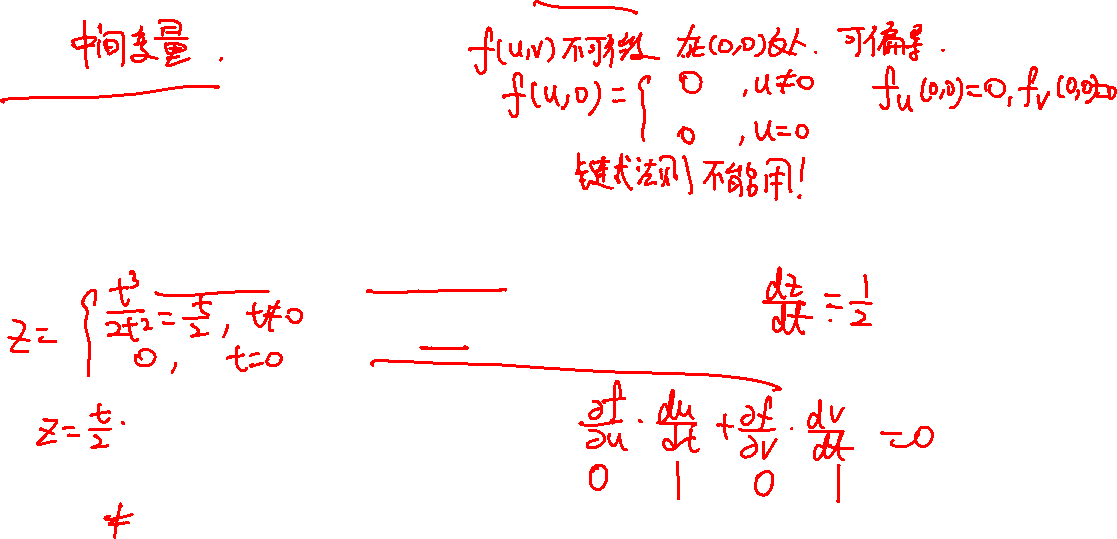 中间变量.
f(u,v)不可微 在(0,0)处. 可偏导.
f(u,0)={ 0 ,u≠0
0 ,u=0
f_u(0,0)=0, f_v(0,0)=0
链式法则 不能用!
z={ t³/2t²=t/2, t≠0
0, t=0
dz/dt=1/2
z=t/2.
∂f/∂u · du/dt + ∂f/∂v · dv/dt =0
0 1 0 1
≠